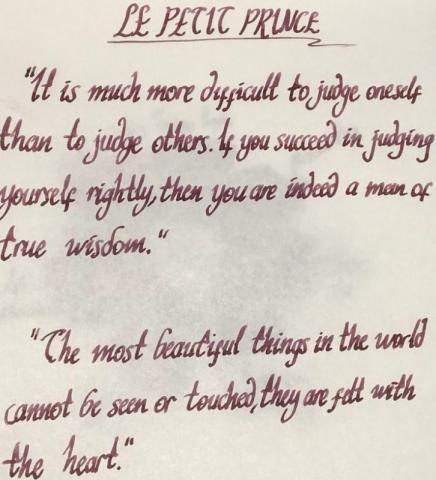 LE PETIT PRINCE
"It is much more difficult to judge oneself
than to judge others. If you succeed in judging
yourself rightly, then you are indeed a man of
true wisdom."
"The most beautiful things in the world
cannot be seen or touched, they are felt with
the heart."